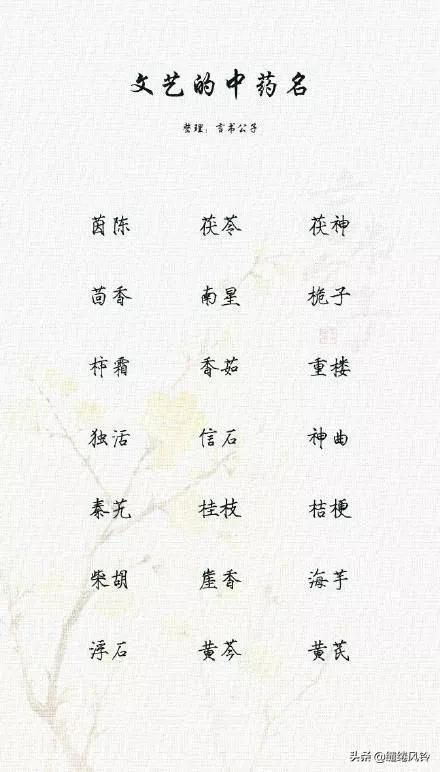 文艺的中药名
整理：言书公子
茵陈 茯苓 茯神
茴香 南星 栀子
柿霜 香茹 重楼
独活 信石 神曲
秦艽 桂枝 桔梗
柴胡 崖香 海芋
浮石 黄芩 黄芪
头条 @缱绻风铃